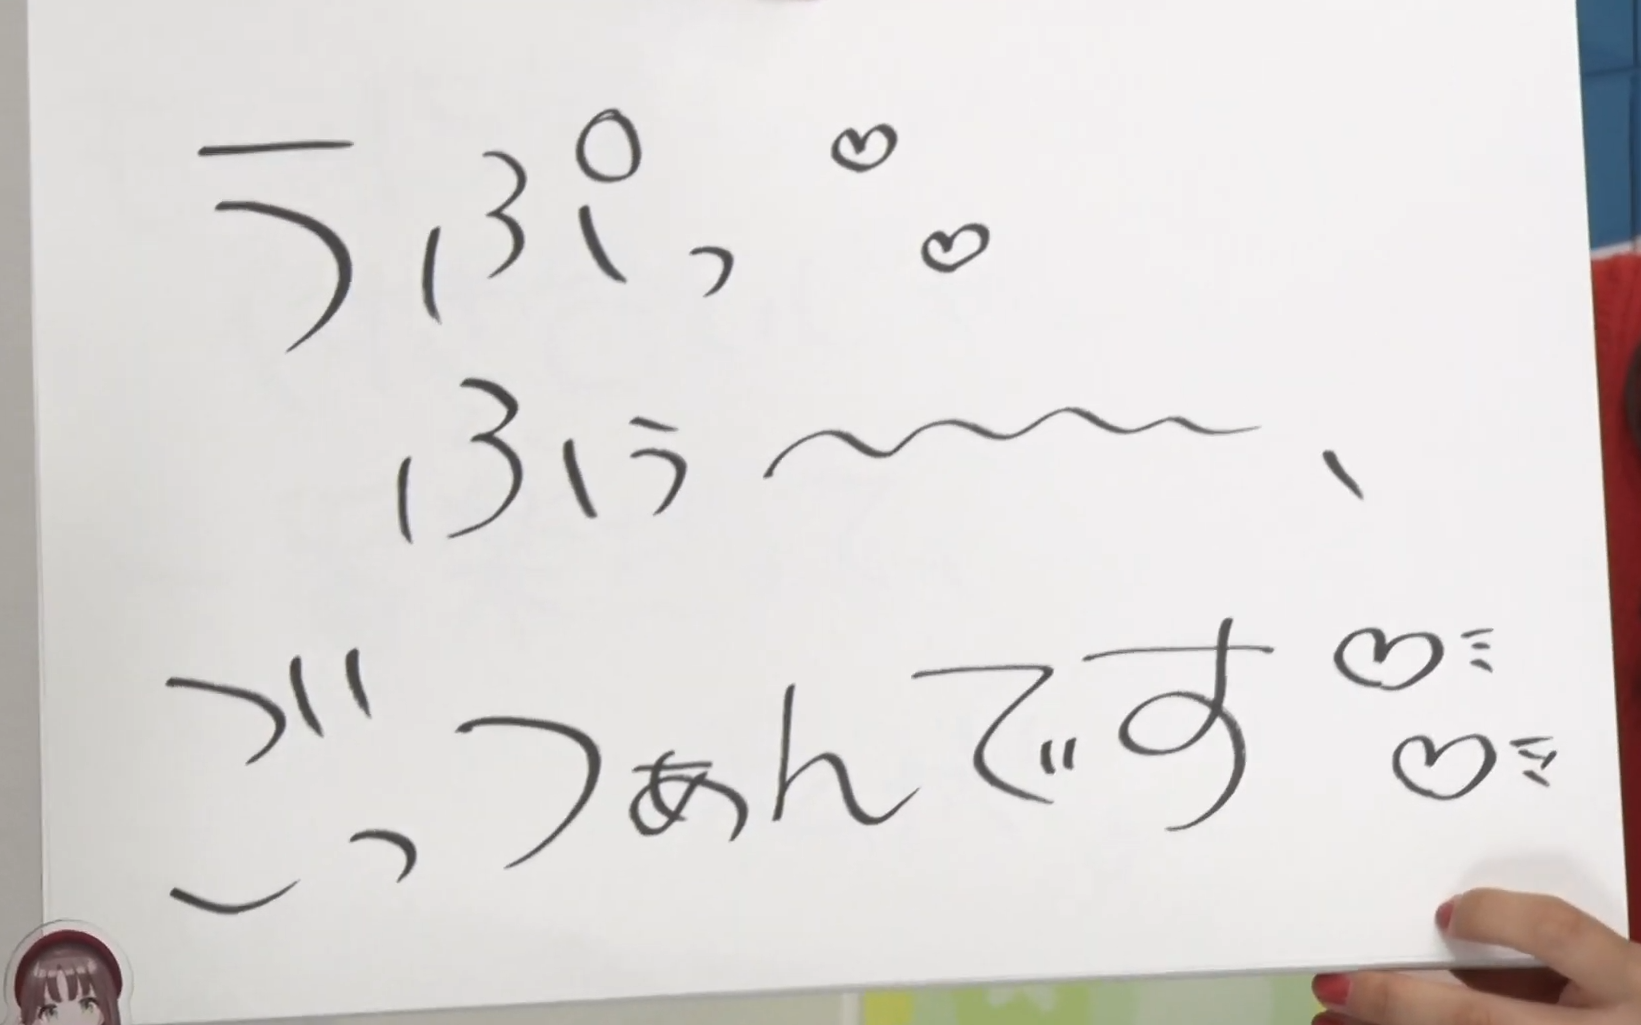 うぷっ♡♡
ふぅ〜〜〜、
ごっつぁんです♡♡